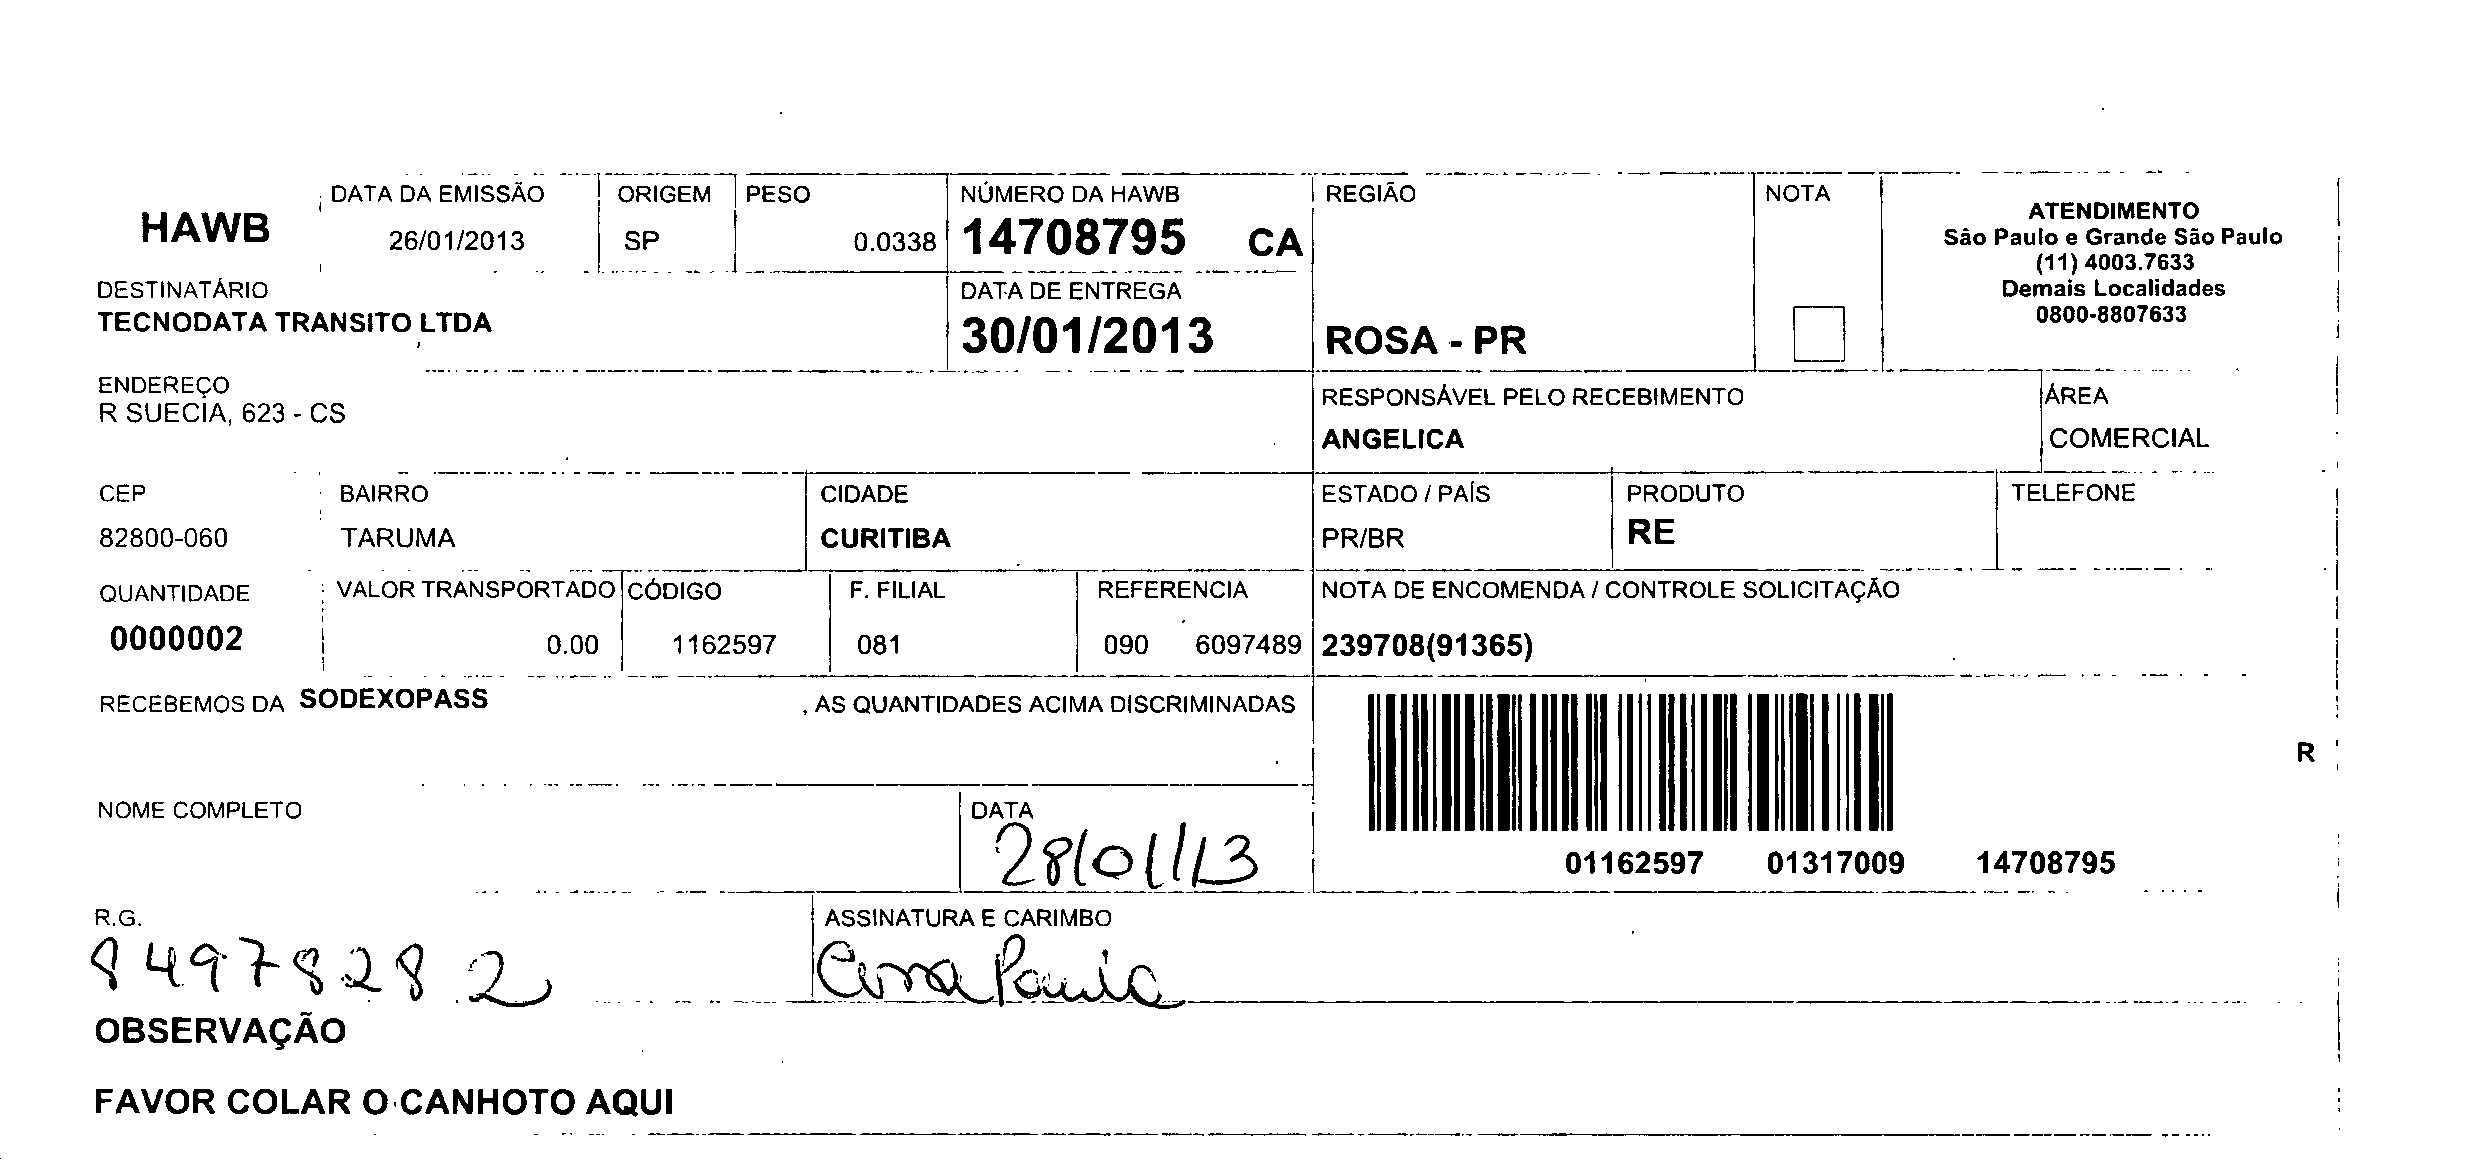 HAWB
DATA DA EMISSÃO
26/01/2013
ORIGEM
SP
PESO
0.0338
NÚMERO DA HAWB
14708795 CA
REGIÃO
ROSA - PR
NOTA
ATENDIMENTO
São Paulo e Grande São Paulo
(11) 4003.7633
Demais Localidades
0800-8807633
DESTINATÁRIO
TECNODATA TRANSITO LTDA
DATA DE ENTREGA
30/01/2013
ENDEREÇO
R SUECIA, 623 - CS
RESPONSÁVEL PELO RECEBIMENTO
ANGELICA
ÁREA
COMERCIAL
CEP
82800-060
BAIRRO
TARUMA
CIDADE
CURITIBA
ESTADO / PAÍS
PR/BR
PRODUTO
RE
TELEFONE
QUANTIDADE
0000002
VALOR TRANSPORTADO
0.00
CÓDIGO
1162597
F. FILIAL
081
REFERENCIA
090 6097489
NOTA DE ENCOMENDA / CONTROLE SOLICITAÇÃO
239708(91365)
RECEBEMOS DA SODEXOPASS , AS QUANTIDADES ACIMA DISCRIMINADAS
R
NOME COMPLETO
DATA
28/01/13
01162597 01317009 14708795
R.G.
84978282
ASSINATURA E CARIMBO
Ana Paula
OBSERVAÇÃO
FAVOR COLAR O CANHOTO AQUI